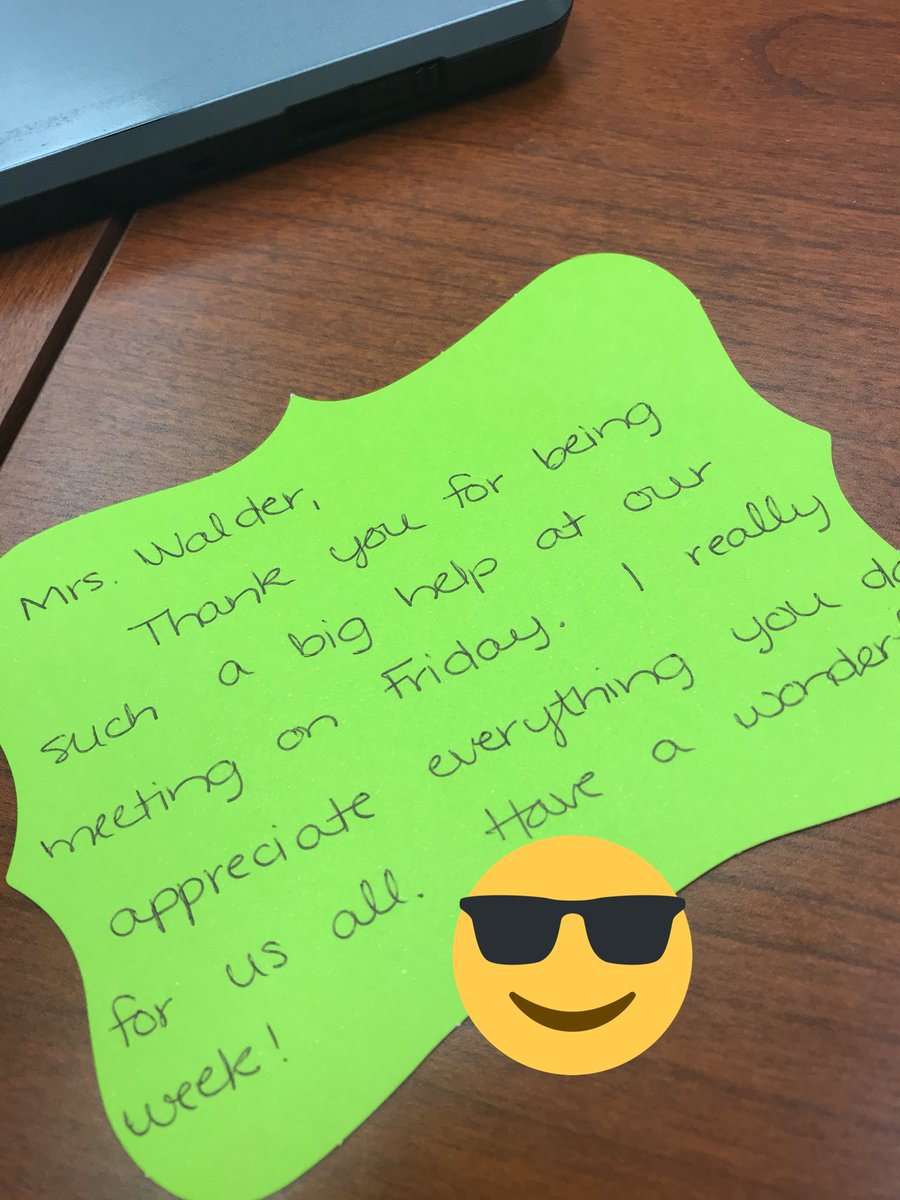 Mrs. Walder,
Thank you for being
such a big help at our
meeting on Friday. I really
appreciate everything you do
for us all. Have a wonderf
week!